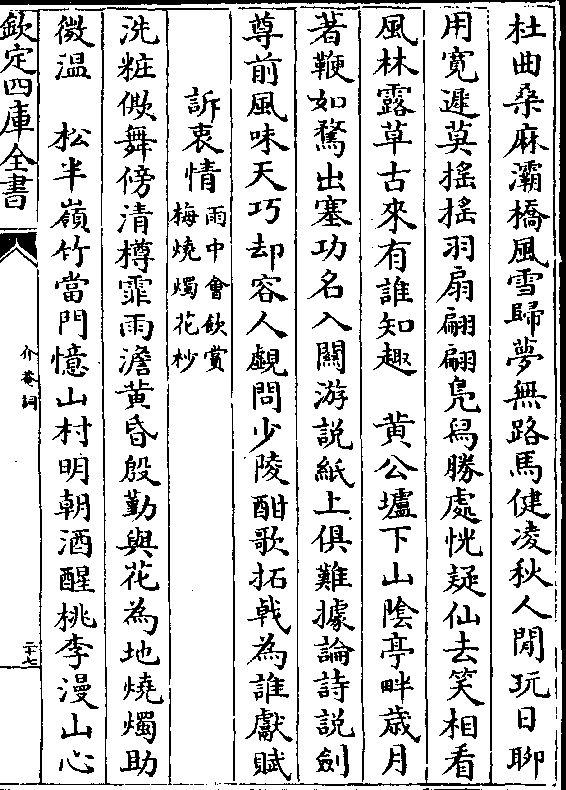 杜曲桑麻灞橋風雪歸夢無路馬健凌秋人閒玩日聊
用寛遲莫搖搖羽扇翩翩鳬舄勝處恍疑仙去笑相看
風林露草古來有誰知趣　黄公壚下山陰亭畔歳月
著鞭如騖出塞功名入關游説紙上俱難據論詩説劍
尊前風味天巧却容人覷問少陵酣歌拓㦸為誰獻賦
訴衷情
雨中會飲賞
梅燒燭花杪
洗粧僛舞傍清樽霏雨澹黄昏殷勤與花為地燒燭助
微温　松半嶺竹當門憶山村明朝酒醒桃李漫山心
欽定四庫全書
介菴詞
二十七